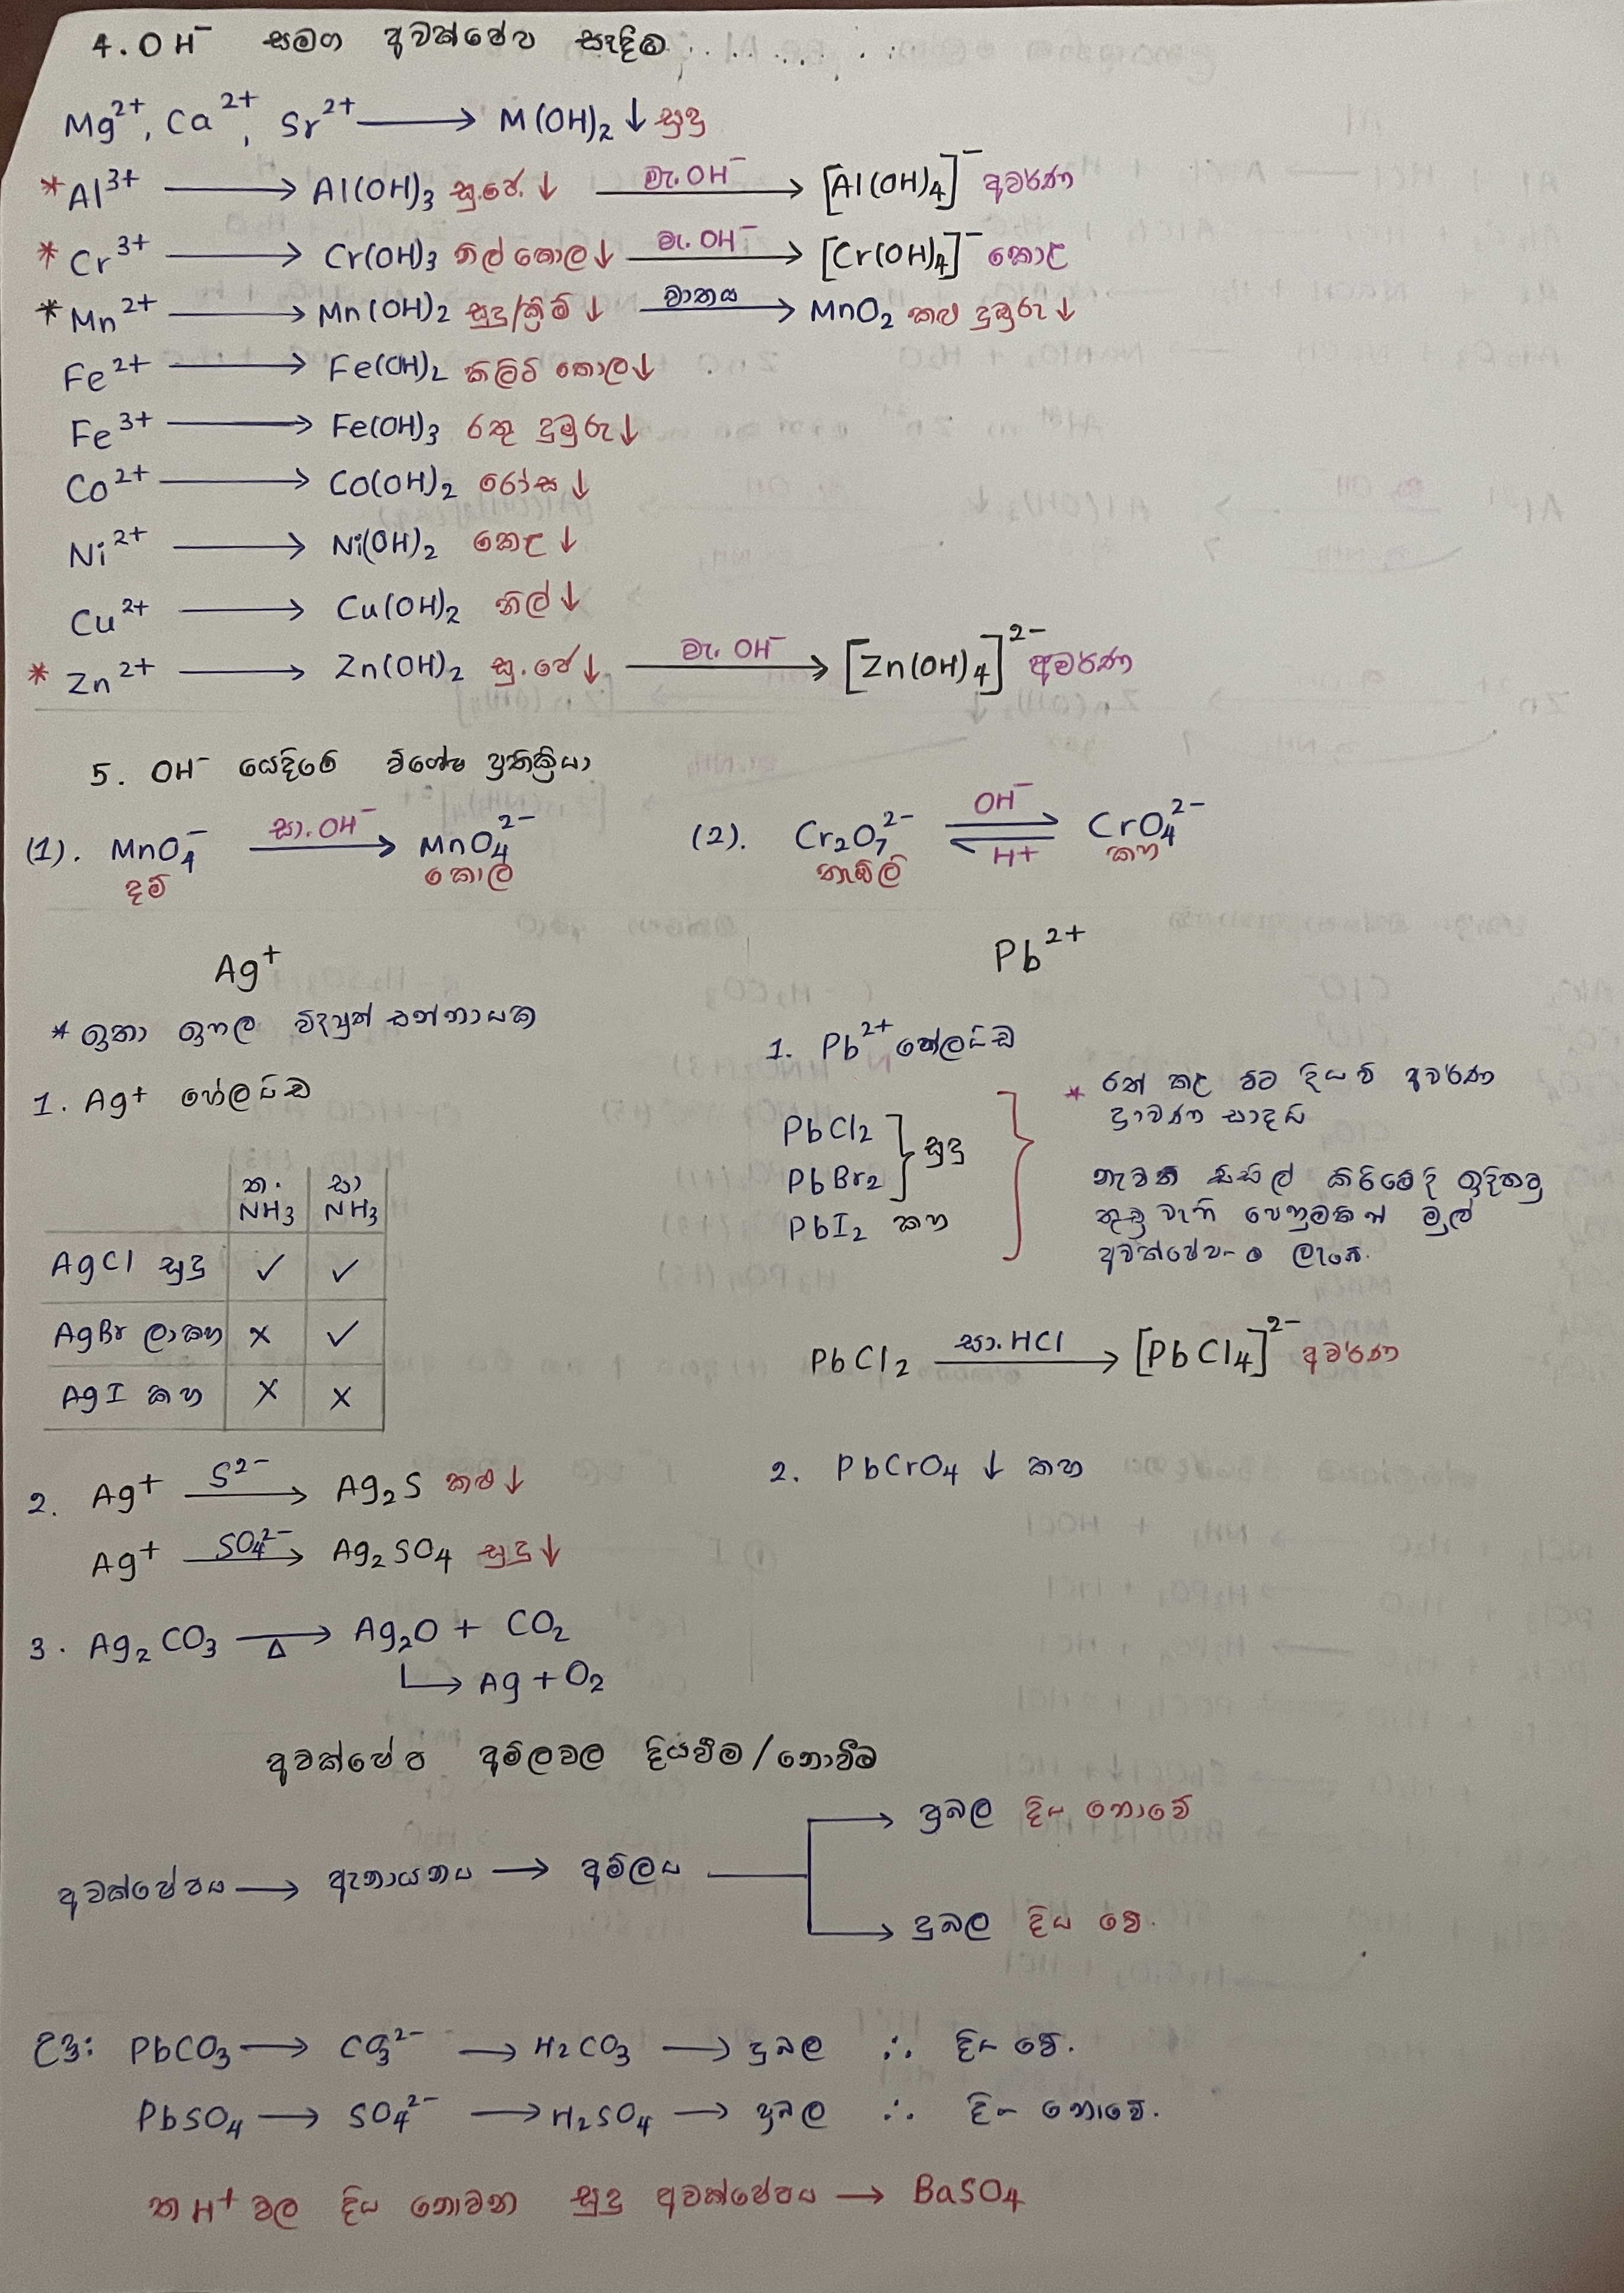 4. OH⁻ සමග අවක්ෂේප සෑදීම
Mg²⁺, Ca²⁺, Sr²⁺ ⟶ M(OH)₂ ↓ සුදු
* Al³⁺ ⟶ Al(OH)₃ සු.ජෙ. ↓ —වැ. OH⁻→ [Al(OH)₄]⁻ අවර්ණ
* Cr³⁺ ⟶ Cr(OH)₃ නිල් කොල ↓ —වැ. OH⁻→ [Cr(OH)₄]⁻ කොළ
* Mn²⁺ ⟶ Mn(OH)₂ සුදු/ක්‍රීම් ↓ —වාතය→ MnO₂ කළු දුඹුරු ↓
Fe²⁺ ⟶ Fe(OH)₂ කිලිටි කොල ↓
Fe³⁺ ⟶ Fe(OH)₃ රතු දුඹුරු ↓
Co²⁺ ⟶ Co(OH)₂ රෝස ↓
Ni²⁺ ⟶ Ni(OH)₂ කොළ ↓
Cu²⁺ ⟶ Cu(OH)₂ නිල් ↓
* Zn²⁺ ⟶ Zn(OH)₂ සු.ජෙ ↓ —වැ. OH⁻→ [Zn(OH)₄]²⁻ අවර්ණ
5. OH⁻ යෙදීමේ විශේෂ ප්‍රතික්‍රියා
(1). MnO₄⁻ —සා. OH⁻→ MnO₄²⁻
දම් කොල
(2). Cr₂O₇²⁻ ⇌ CrO₄²⁻
OH⁻
H+
තැඹිලි කහ
Ag⁺
* ඉතා ඉහල විද්‍යුත් සන්නායක
1. Ag⁺ හේලයිඩ
ත. NH₃ | සා NH₃
AgCl සුදු | ✓ | ✓
AgBr ලා කහ | × | ✓
AgI කහ | × | ×
2. Ag⁺ —S²⁻→ Ag₂S කළු ↓
Ag⁺ —SO₄²⁻→ Ag₂SO₄ සුදු ↓
3. Ag₂CO₃ —Δ→ Ag₂O + CO₂
↳ Ag + O₂
Pb²⁺
1. Pb²⁺ හේලයිඩ
PbCl₂
PbBr₂ } සුදු
PbI₂ කහ
* රත් කළ විට දිය වී අවර්ණ
ද්‍රාවණ සාදයි
නැවත සිසිල් කිරීමේදී ඉදිකටු
තුඩු වැනි පෙනුමකින් මුල්
අවක්ෂේපම ලැබේ.
PbCl₂ —සා. HCl→ [PbCl₄]²⁻ අවර්ණ
2. PbCrO₄ ↓ කහ
අවක්ෂේප අම්ලවල දියවීම/නොවීම
අවක්ෂේපය → ඇනායනය → අම්ලය
→ ප්‍රබල දිය නොවේ
→ දුබල දිය වේ.
උදා: PbCO₃ → CO₃²⁻ → H₂CO₃ → දුබල ∴ දිය වේ.
PbSO₄ → SO₄²⁻ → H₂SO₄ → ප්‍රබල ∴ දිය නොවේ.
ත H⁺ වල දිය නොවන සුදු අවක්ෂේපය → BaSO₄